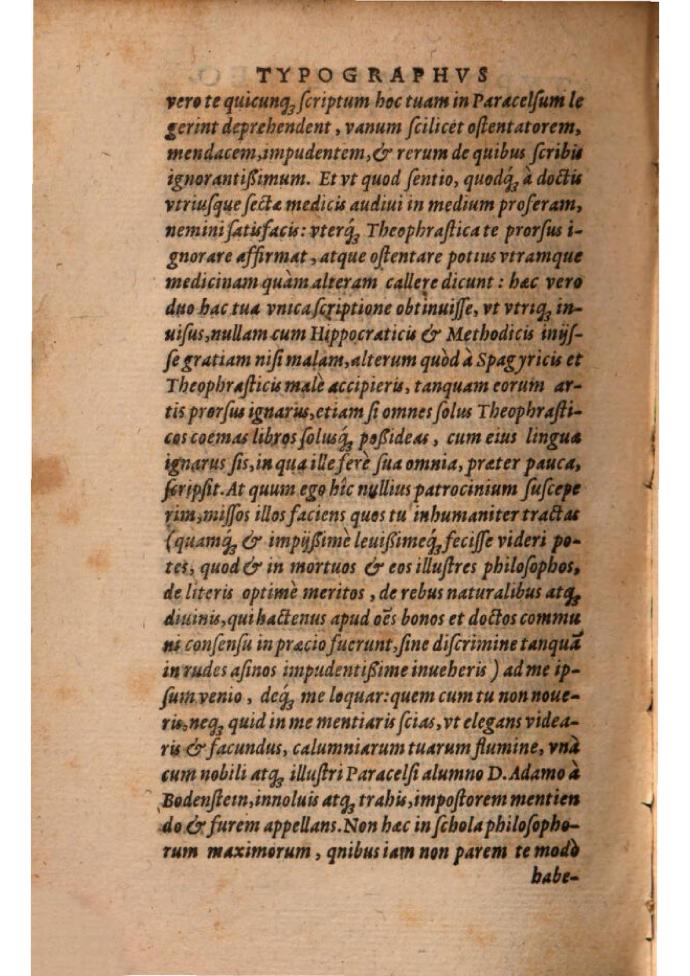 TYPOGRAPHVS
vero te quicunqꝫ ſcriptum hoc tuam in Paracelſum le
gerint deprehendent, vanum ſcilicet oſtentatorem,
mendacem,impudentem,& rerum de quibus ſcribis
ignorantißimum. Et vt quod ſentio, quodqꝫ à doctis
vtriuſque ſectæ medicis audiui in medium proferam,
nemini ſatisfacis: vterqꝫ Theophraſtica te prorſus i-
gnorare affirmat, atque oſtentare potius vtramque
medicinam quàm alteram callere dicunt : hæc vero
duo hac tua vnica ſcriptione obtinuiſſe, vt vtriqꝫ in-
uiſus,nullam cum Hippocraticis & Methodicis inijſ-
ſe gratiam niſi malam,alterum quòd à Spagyricis et
Theophraſticis malè accipieris, tanquam eorum ar-
tis prorſus ignarus,etiam ſi omnes ſolus Theophraſti-
cos coemas libros ſoluſqꝫ poßideas, cum eius lingua
ignarus ſis,in qua ille ferè ſua omnia, præter pauca,
ſcripſit.At quum ego hîc nullius patrocinium ſuſcepe
rim,miſſos illos faciens quos tu inhumaniter tractas
(quamqꝫ & impijßimè leuißimeqꝫ feciſſe videri po-
tes, quod & in mortuos & eos illuſtres philoſophos,
de literis optimè meritos, de rebus naturalibus atqꝫ
diuinis,qui hactenus apud oēs bonos et doctos commu
ni conſenſu in præcio fuerunt,ſine diſcrimine tanquā
in rudes aſinos impudentißime inueheris ) ad me ip-
ſum venio, deqꝫ me loquar:quem cum tu non noue-
ris,neqꝫ quid in me mentiaris ſcias,vt elegans videa-
ris & facundus, calumniarum tuarum flumine, vnà
cum nobili atqꝫ illuſtri Paracelſi alumno D. Adamo à
Bodenſtein,inuoluis atqꝫ trahis,impoſtorem mentien
do & furem appellans. Non hæc in ſchola philoſopho-
rum maximorum, qnibus iam non parem te modò
habe-